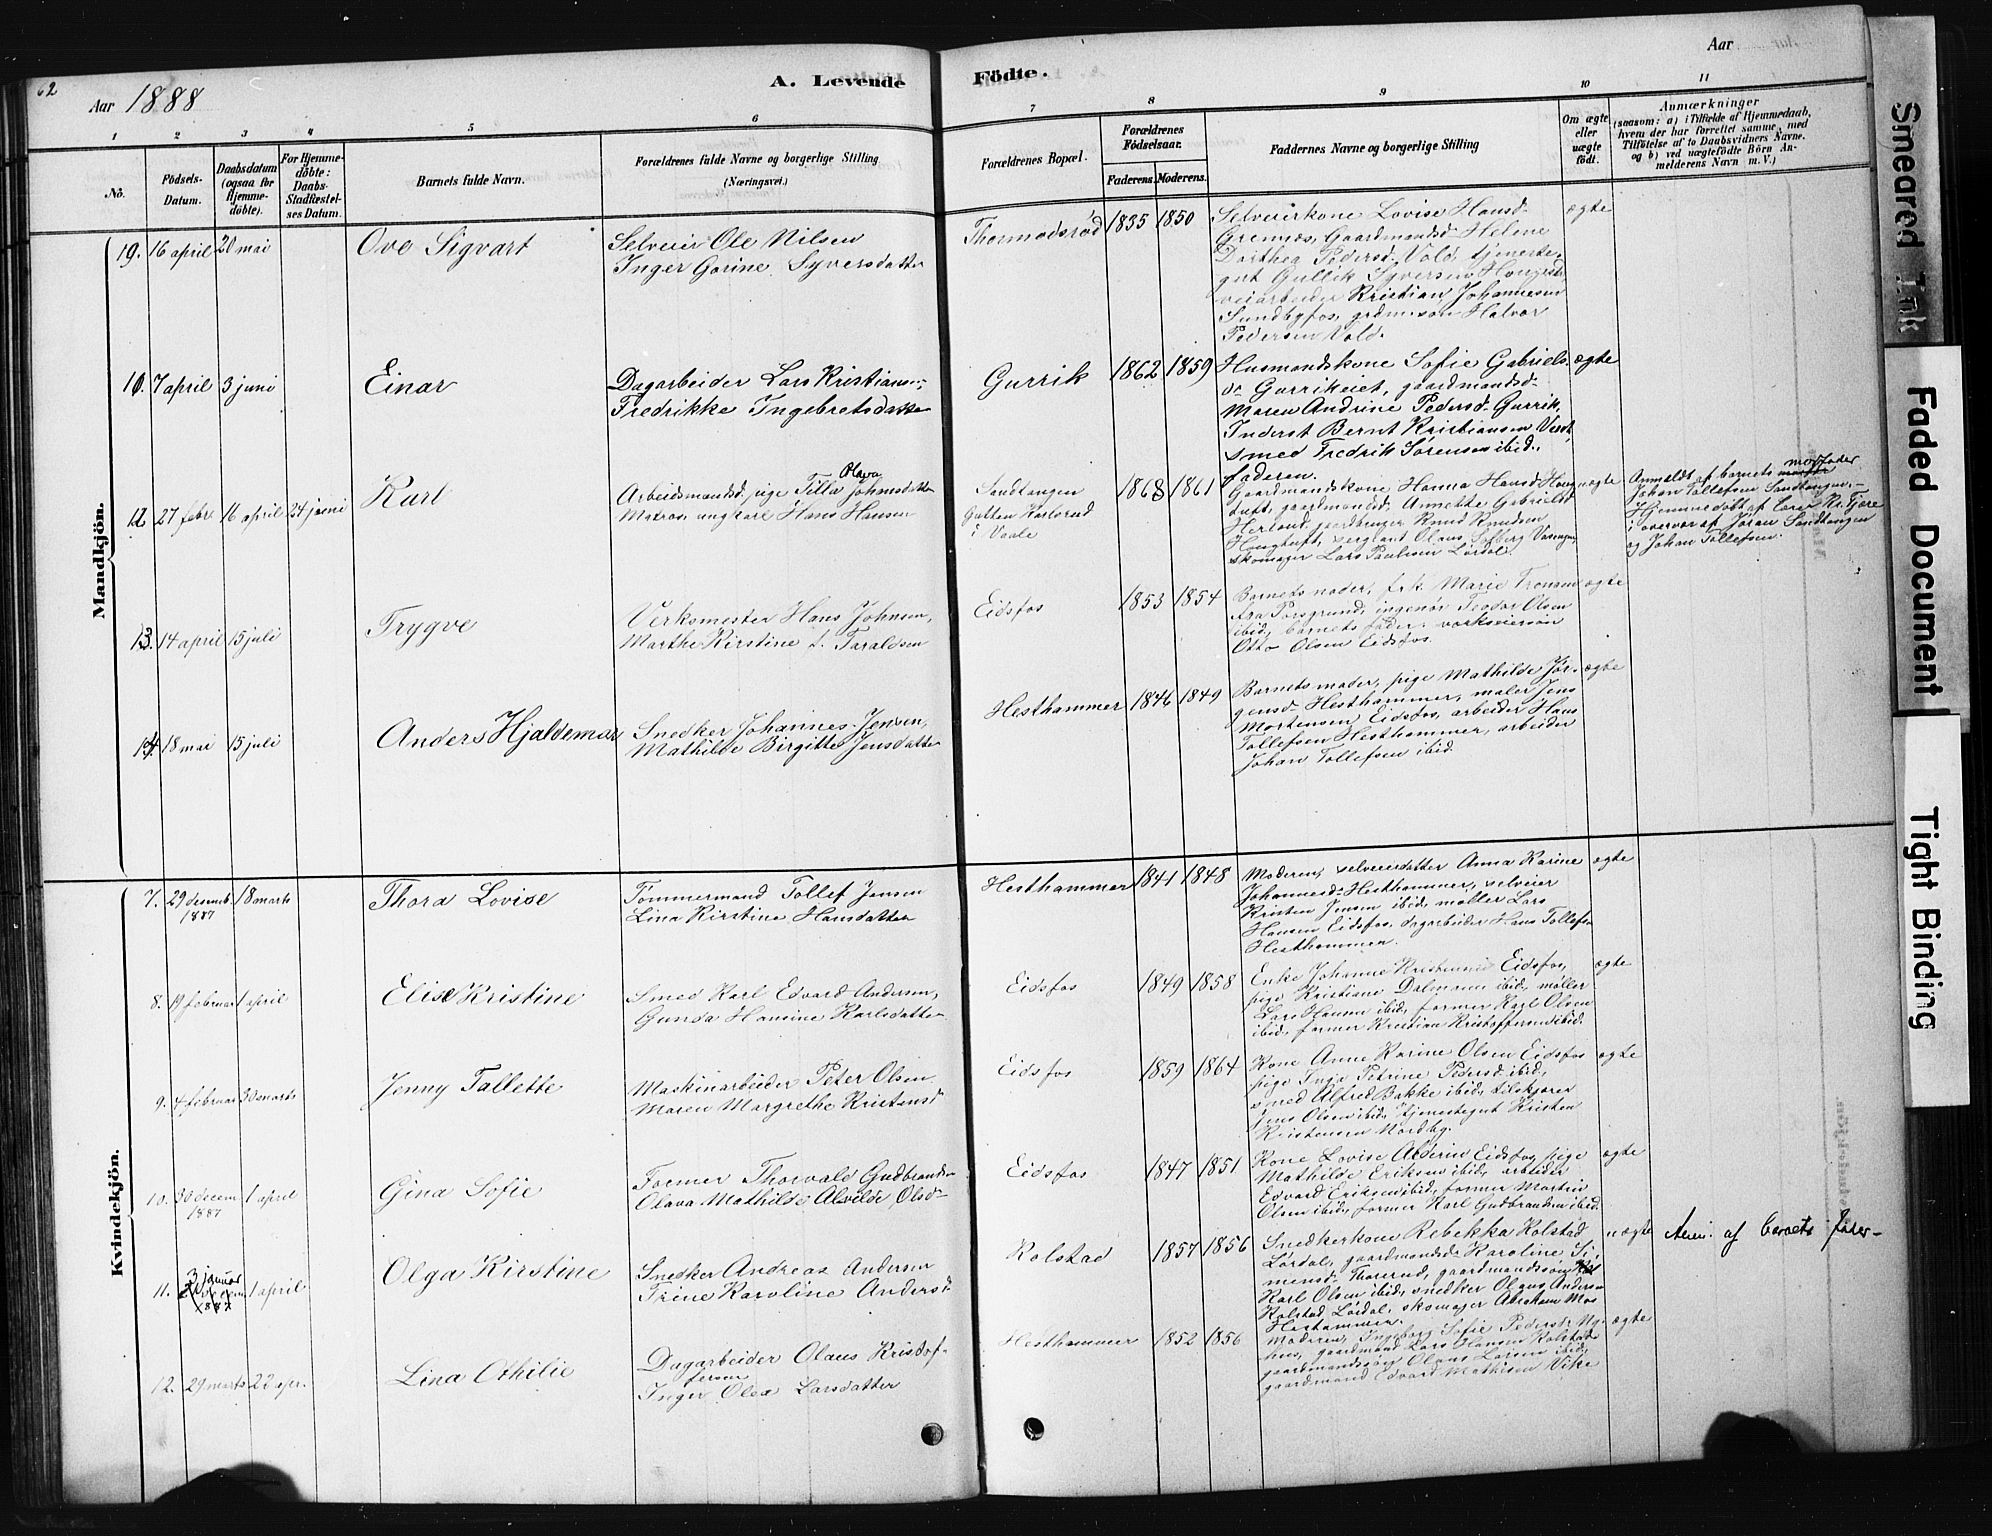 62
Aar 1888
A. Levende
Födte.
Aar
1 2 3 4 5 6 7 8 9 10 11
No.
Födsels-Datum.
Daabsdatum (ogsaa for Hjemme-döbte).
For Hjemme-döbte: Daabs-Stadfæstel-ses Datum.
Barnets fulde Navn.
Forældrenes fulde Navne og borgerlige Stilling (Næringsvei.)
Forældrenes Bopæl.
Forældrenes Födselsaar.
Faderens. Moderens.
Faddernes Navne og borgerlige Stilling
Om ægte eller uægte födt.
Anmærkninger
(saasom: a) i Tilfælde af Hjemmedaab, hvem der har forrettet samme, med Tilföielse af to Daabsvidners Navne. og b) ved uægtefödte Börn An-melderens Navn m. V.)
Mandkjön.
19. 16 april 20 mai
Ove Sigvart
Selveier Ole Nilsen
Inger Gorine Syversdatter
Thormodsrød 1835 1850
Selveierkone Lovise Hansd-
Grennes, Gaardmandsd. Helene
Dorthea Pedersd. Vold, tjeneste-
gut Gullik Syversen
veiarbeider Kristian Johannesen
Sundbyfos, grdm.søn Halvor
Pedersen Vold.
ægte
10. 7 april 3 juni
Einar
Dagarbeider Lars Kristiansen
Fredrikke Ingebretsdatter
Gurrik 1862 1859
Husmandskone Sofie Gabriels-
d. Gurrikeiet, gaardmandsd-
Maren Andrine Pedersd. Gurrik,
Inderst Bernt Kristiansen
smed Fredrik Sørensen ibid.
faderen.
ægte
12 27 febr 16 april 24 juni
Karl
Olava
Arbeidsmandsd. pige Tilla Johansdatter
Matros, ungkarl Hans Hansen
Sandtangen
Gutten Karlsrud
i Vaale
1868 1861
Gaardmandskone Hanna Hansd Houg-
tuft, gaardmandsd. Annette Gabrielsd
gaardbruger Knud Knudsen
Hougtuft, sergeant Olaus Solberg
skomager Lars Paulsen Lørdal.
uægte
Anmeldt af barnets morfader
Johan Tollefsen Sandtangen,-
Hjemmedøbt af lærer Kr. Fjære
i overvær af Jøran Sandtangen
og Johan Tollefsen.
13. 14 april 15 juli
Trygve
Verksmester Hans Johnsen,
Marthe Kirstine f. Taraldsen
Eidsfos 1853 1854
Barnets moder, frk. Marie
fra Porsgrund, ingeniør Teodor Olsen
ibid, barnets fader, verkseiersøn
Otto Olsen Eidsfos.
ægte
14 18 mai 15 juli
Anders Hjaldemar
Snedker Johannes Jensen,
Mathilde Birgitte Jensdatter
Hesthammer 1846 1849
Barnets moder, pige Mathilde Jør-
gensd- Hesthammer, maler Jens
Mortensen Eidsfos, arbeider Hans
Tollefsen Hesthammer, arbeider
Johan Tollefsen ibid.
ægte
Kvindekjön.
7. 29 decemb. 1887 18 marts
Thora Lovise
Tømmermand Tollef Jensen
Lina Kirstine Hansdatter
Hesthammer 1841 1848
Moderen, selveierdatter Anna Karine
Johannesd- Hesthammer, selveier
Kristen Jensen ibid, møller Lars
Hansen Eidsfos, dagarbeider Hans Tollefsen
Hesthammer.
ægte
8. 19 februar 1 april
Elise Kristine
Smed Karl Edvard Andersen,
Gunda Hansine Karlsdatter
Eidsfos 1849 1858
Enke Johanne Eidsfos,
pige Kristiane Dalmann ibid, møller
Lars Hansen ibid, former Karl Olsen
ibid, former Kristian Kristoffersen ibid.
ægte
9. 4 februar 30 marts
Jenny Tallette
Maskinarbeider Peter Olsen
Maren Margrethe Kristensd
Eidsfos 1859 1864
Kone Anne Karine Olsen Eidsfos
pige Inga Petrine Pedersd- ibid,
smed Alfred Bakke ibid, tilskjærer
Jens Olsen ibid, tjenestegut Kristen
Kristensen Nordby.
ægte
10. 30 decem 1887 1 april
Gina Sofie
Former Thorvald Gudbrands-
Olava Mathilde Alvilde Olsd-
Eidsfos 1847 1851
Kone Lovise Eidsfos, pige
Mathilde Eriksen ibid, arbeider
Edvard Eriksen ibid, former Martin
Olsen ibid, former Karl Gudbrandsen ibid.
ægte
11. 3 januar 1 april
1887
Olga Kirstine
Snedker Andreas Andersen
Trine Karoline Andersd
Kolstad 1857 1856
Snedkerkone Rebekka Kolstad
Lørdal, gaardmandsd. Karoline Si-
mensd- Thorerud, gaardmandssøn
Karl Olsen ibid, snedker Olaus Andersen
Kolstad Lørdal, skomager Abraham
Hesthammer.
uægte
Anm. af barnets fader-
12. 29 marts 22 apr.
Lina Othilie
Dagarbeider Olaus Kristof-
fersen
Inger Olea Larsdatter
Hesthammer 1852 1856
Moderen, Ingeborg Sofie Pedersd. Ny-
hus, gaardmand Lars Hansen Kolstad
gaardmandssøn Olaus Larsen ibid,
gaardmand Edvard Mathisen Vike
ægte
Smeared Ink
Faded Document
Tight Binding